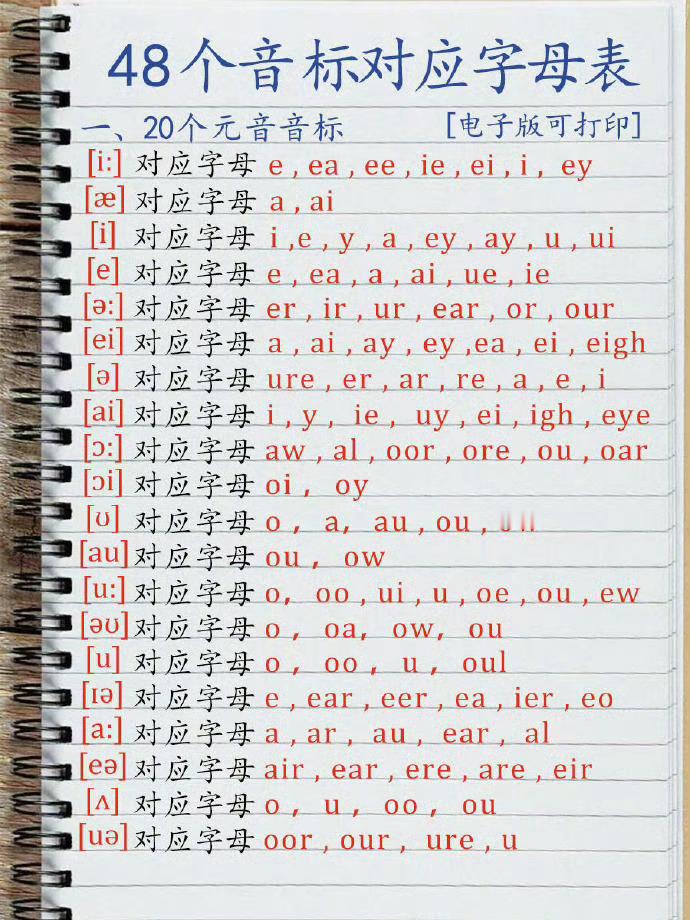 48个音标对应字母表
一、20个元音音标 [电子版可打印]
[i:] 对应字母 e , ea , ee , ie , ei , i , ey
[æ] 对应字母 a , ai
[i] 对应字母 i ,e , y , a , ey , ay , u , ui
[e] 对应字母 e , ea , a , ai , ue , ie
[ə:] 对应字母 er , ir , ur , ear , or , our
[ei] 对应字母 a , ai , ay , ey ,ea , ei , eigh
[ə] 对应字母 ure , er , ar , re , a , e , i
[ai] 对应字母 i , y , ie , uy , ei , igh , eye
[ɔ:] 对应字母 aw , al , oor , ore , ou , oar
[ɔi] 对应字母 oi , oy
[ʊ] 对应字母 o , a, au , ou ,
[au] 对应字母 ou , ow
[u:] 对应字母 o, oo , ui , u , oe , ou , ew
[əʊ] 对应字母 o , oa, ow, ou
[u] 对应字母 o , oo , u , oul
[ɪə] 对应字母 e , ear , eer , ea , ier , eo
[a:] 对应字母 a , ar , au , ear , al
[eə] 对应字母 air , ear , ere , are , eir
[ʌ] 对应字母 o , u , oo , ou
[uə] 对应字母 oor , our , ure , u